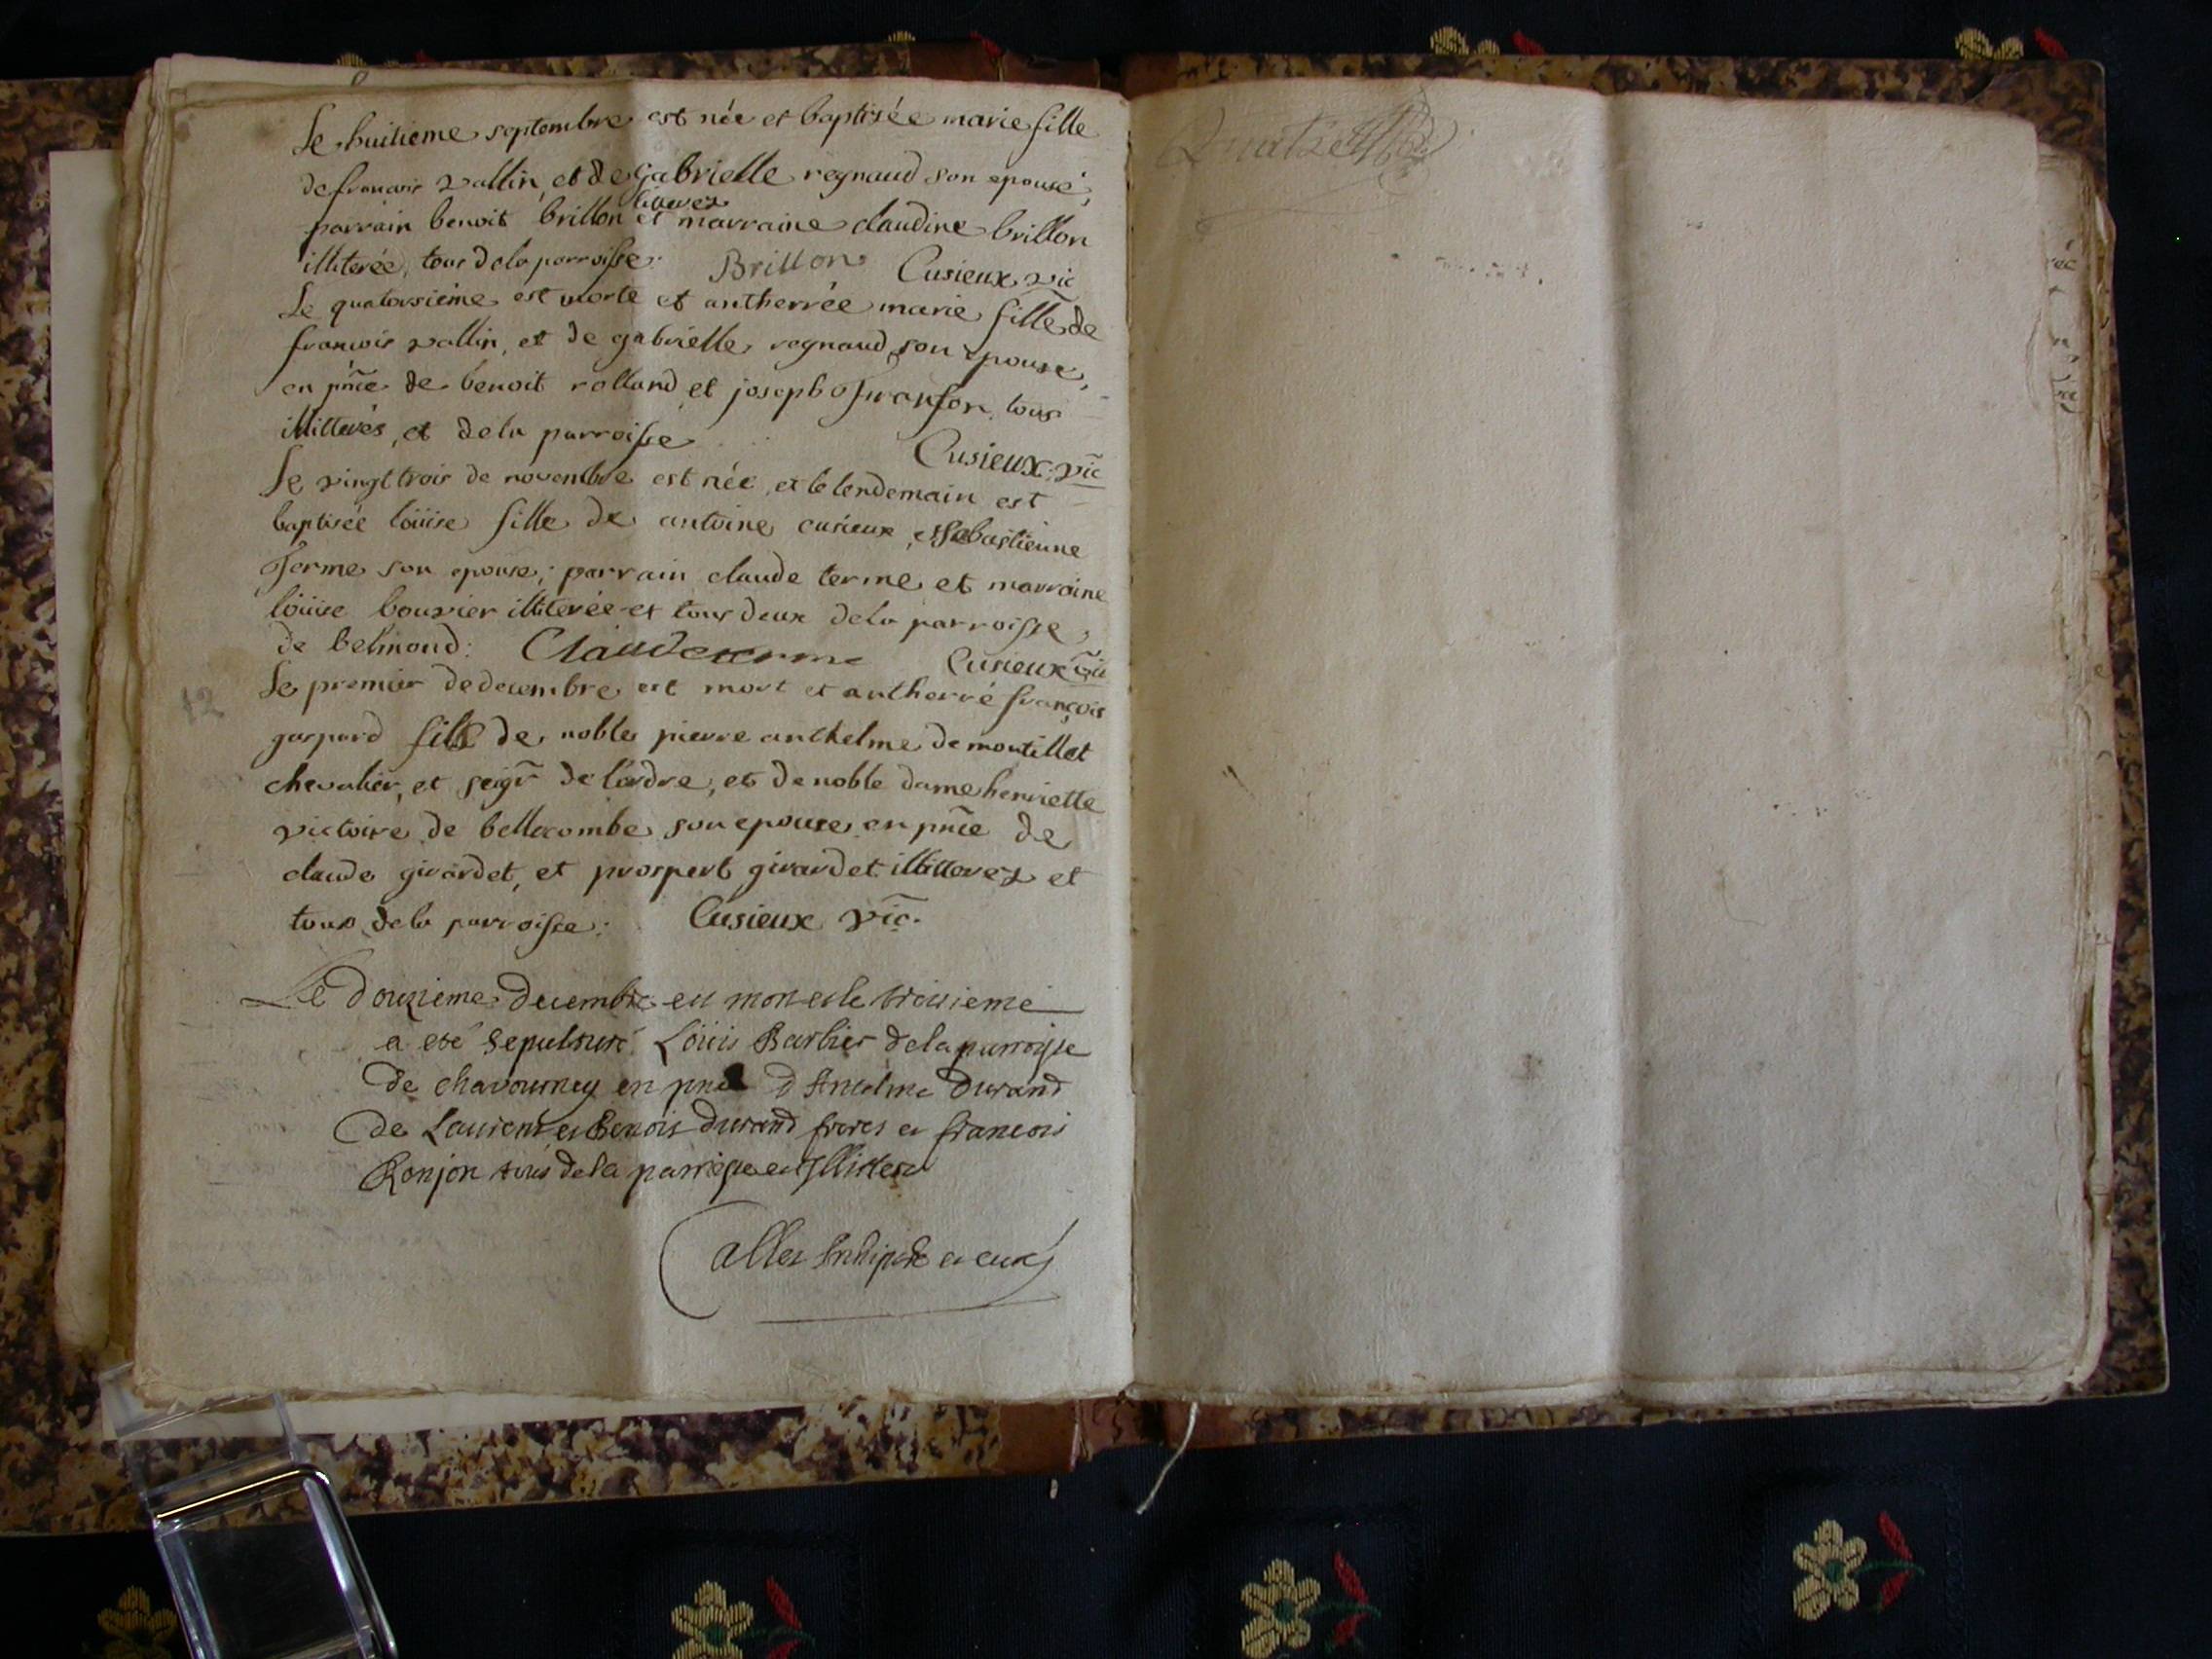 Le huitieme septembre est née et baptisée marie fille
de francois vallin, et de gabrielle regnaud son epouse,
litterez
parrain benoit brillon et marraine claudine brillon
illiterée, tous de la parroisse. Brillon Cusieux vic
Le quatorsiéme est morte et antherrée marie fille de
francois vallin, et de gabrielle regnaud son epouse,
en pñce de benoit rolland et joseph
illitterés, et de la parroisse Cusieux vic̃
Le vingt trois de novembre est née, et le lendemain est
baptisée loüise fille de antoine cusieux, et sebastienne
Terme son epouse; parrain claude terme et marraine
loüise bouvier illiterée et tous deux de la parroisse
de belmond: Claude terme Cusieux vic̃
12
Le premier de decembre est mort et antherré françois
gaspard fils de noble pierre anthelme de montillet
chevalier, et seigr̃ de lardre, et de noble dame henriette
victoire de bellecombe son epouse en pñce de
claude girardet, et prospert girardet illitterez et
tous de la parroisse: Cusieux vic̃.
Le douzieme decembre est mort et le troisieme
a eté sepulturé Loüis Barbier de la parroisse
de chavourney en pnce d'Antelme Durand
de Laurent et Benois durand freres et francois
Ronjon tous de la parroisse et Illiteres